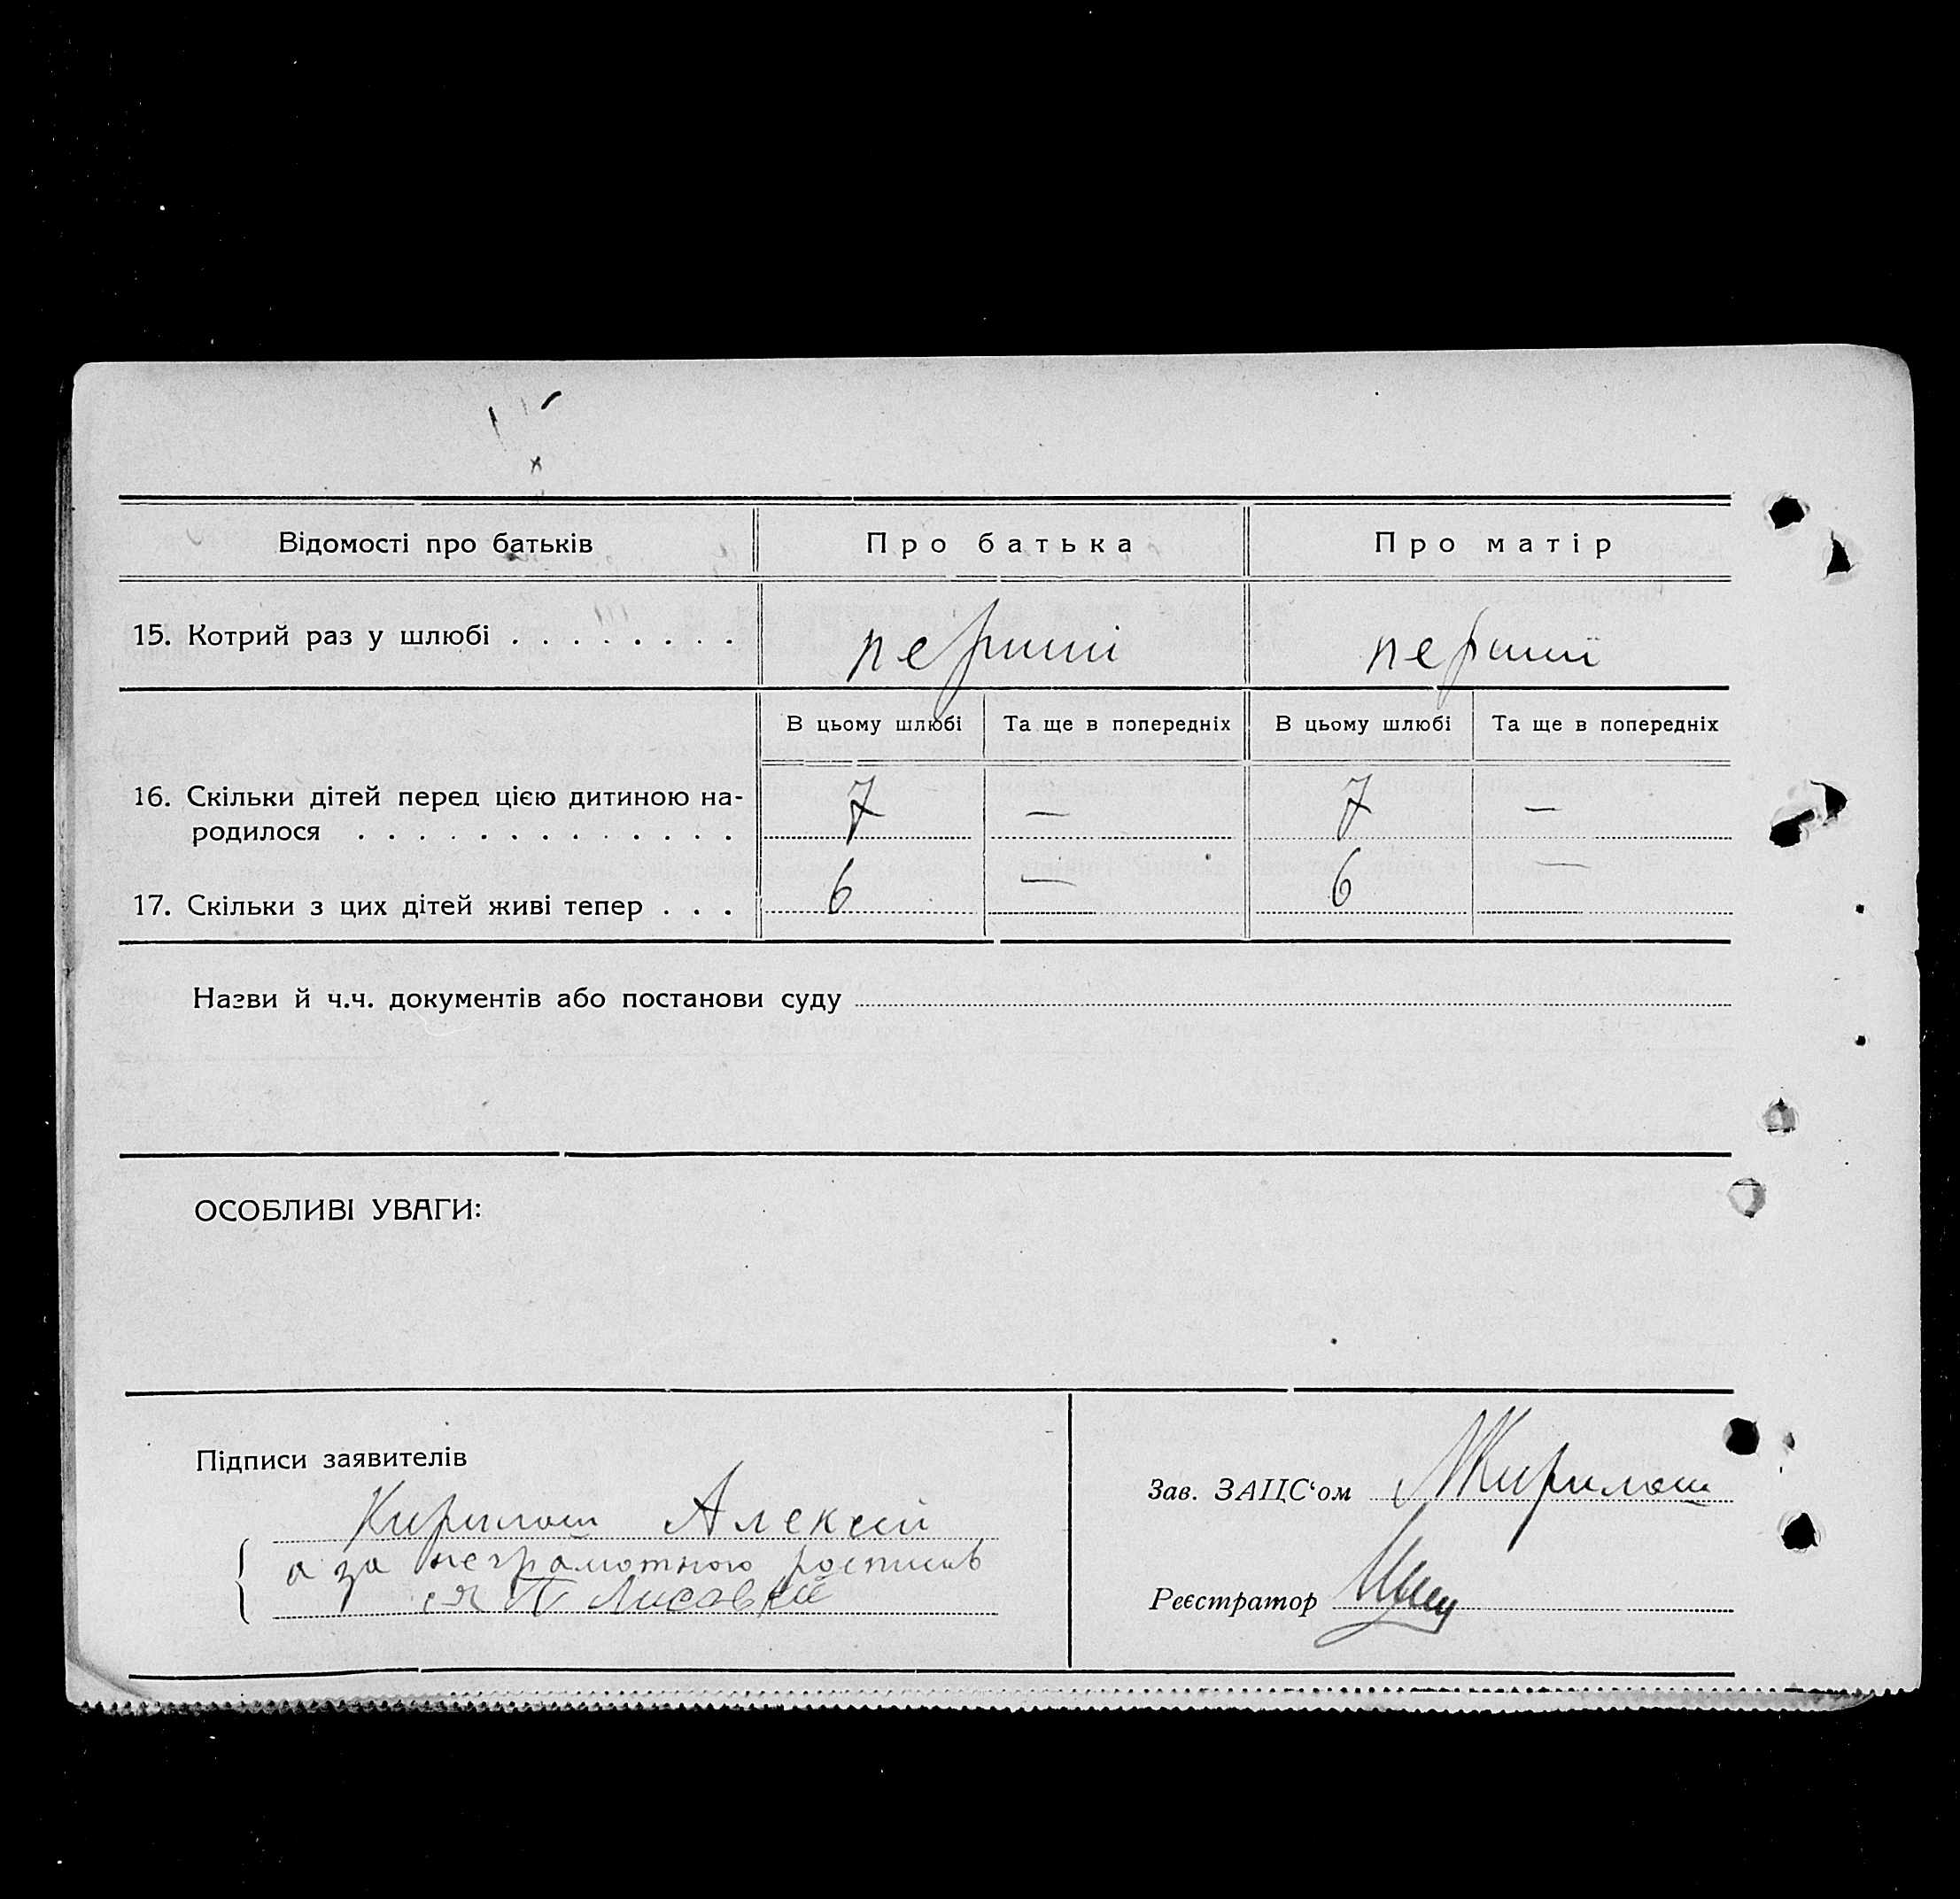 Відомості про батьків Про батька Про матір
15. Котрий раз у шлюбі . . . . . . . . перший перший
В цьому шлюбі Та ще в попередніх В цьому шлюбі Та ще в попередніх
16. Скільки дітей перед цією дитиною на- 7 — 7 —
родилося . . . . . . . . . . . . .
17. Скільки з цих дітей живі тепер . . . 6 — 6 —
Назви й ч.ч. документів або постанови суду
ОСОБЛИВІ УВАГИ:
Підписи заявителів
Зав. ЗАЦС‘ом
Алексей
а за неграмотного росписав
ся П Лисавкий
Реєстратор